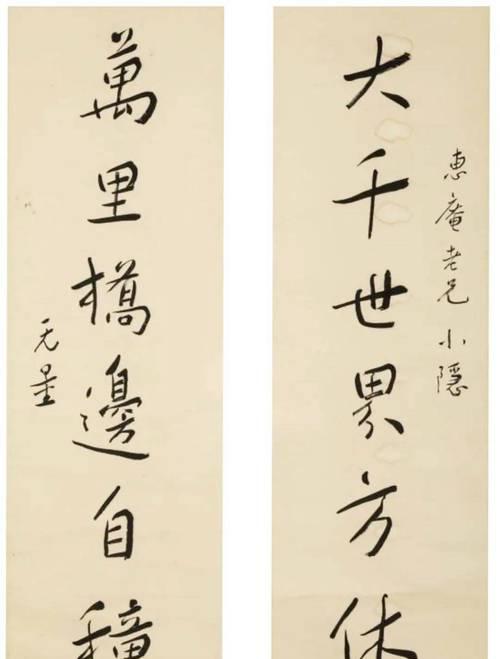 恵庵老兄小隱
大千世界方休
萬里橋邊自穜
无量